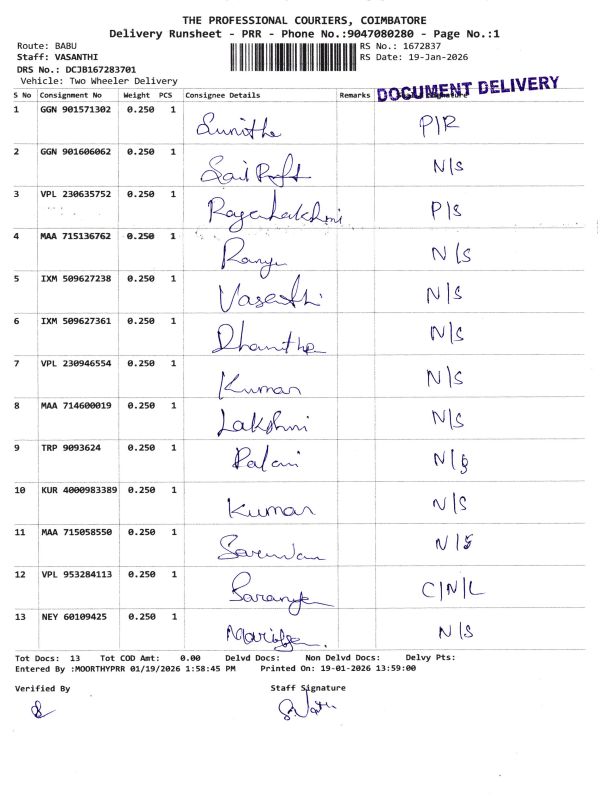 THE PROFESSIONAL COURIERS, COIMBATORE
Delivery Runsheet - PRR - Phone No.:9047080280 - Page No.:1
Route: BABU RS No.: 1672837
Staff: VASANTHI RS Date: 19-Jan-2026
DRS No.: DCJB167283701
Vehicle: Two Wheeler Delivery
DOCUMENT DELIVERY
S No Consignment No Weight PCS Consignee Details Remarks
1 GGN 901571302 0.250 1 Sunitha P/R
2 GGN 901606062 0.250 1 N/S
3 VPL 230635752 0.250 1 Rajalakshmi P/S
4 MAA 715136762 0.250 1 N/S
5 IXM 509627238 0.250 1 Vasanthi N/S
6 IXM 509627361 0.250 1 Dhanitha N/S
7 VPL 230946554 0.250 1 Kumar N/S
8 MAA 714600019 0.250 1 Lakshmi N/S
9 TRP 9093624 0.250 1 Palani N/S
10 KUR 4000983389 0.250 1 Kumar N/S
11 MAA 715058550 0.250 1 Saravanan N/S
12 VPL 953284113 0.250 1 Saranya C/N/L
13 NEY 60109425 0.250 1 N/S
Tot Docs: 13 Tot COD Amt: 0.00 Delvd Docs: Non Delvd Docs: Delvy Pts:
Entered By :MOORTHYPRR 01/19/2026 1:58:45 PM Printed On: 19-01-2026 13:59:00
Verified By Staff Signature